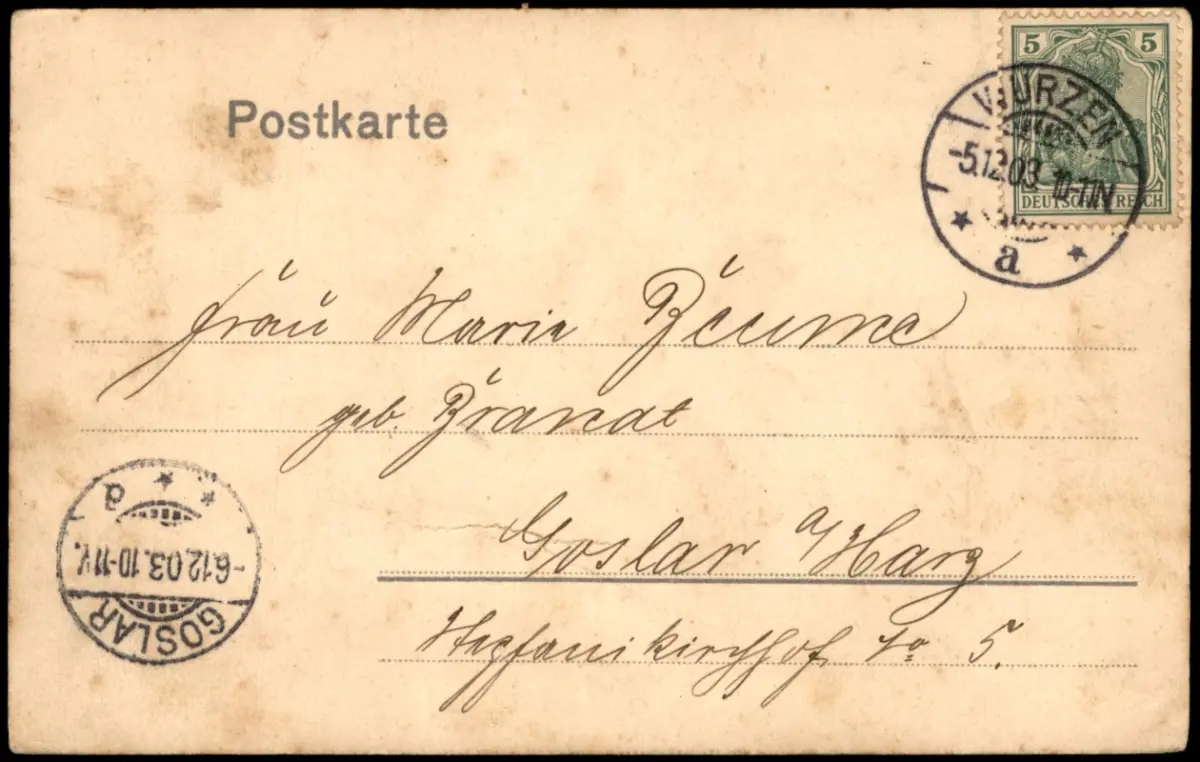 Postkarte
5 5
DEUTSCHES REICH
WURZEN
-5.12.03. 10-11N
a
Frau Marie Baume
geb. Brandt
Goslar a/Harz
Stephanikirchhof No 5.
GOSLAR
-6.12.03. 10-11V.
a